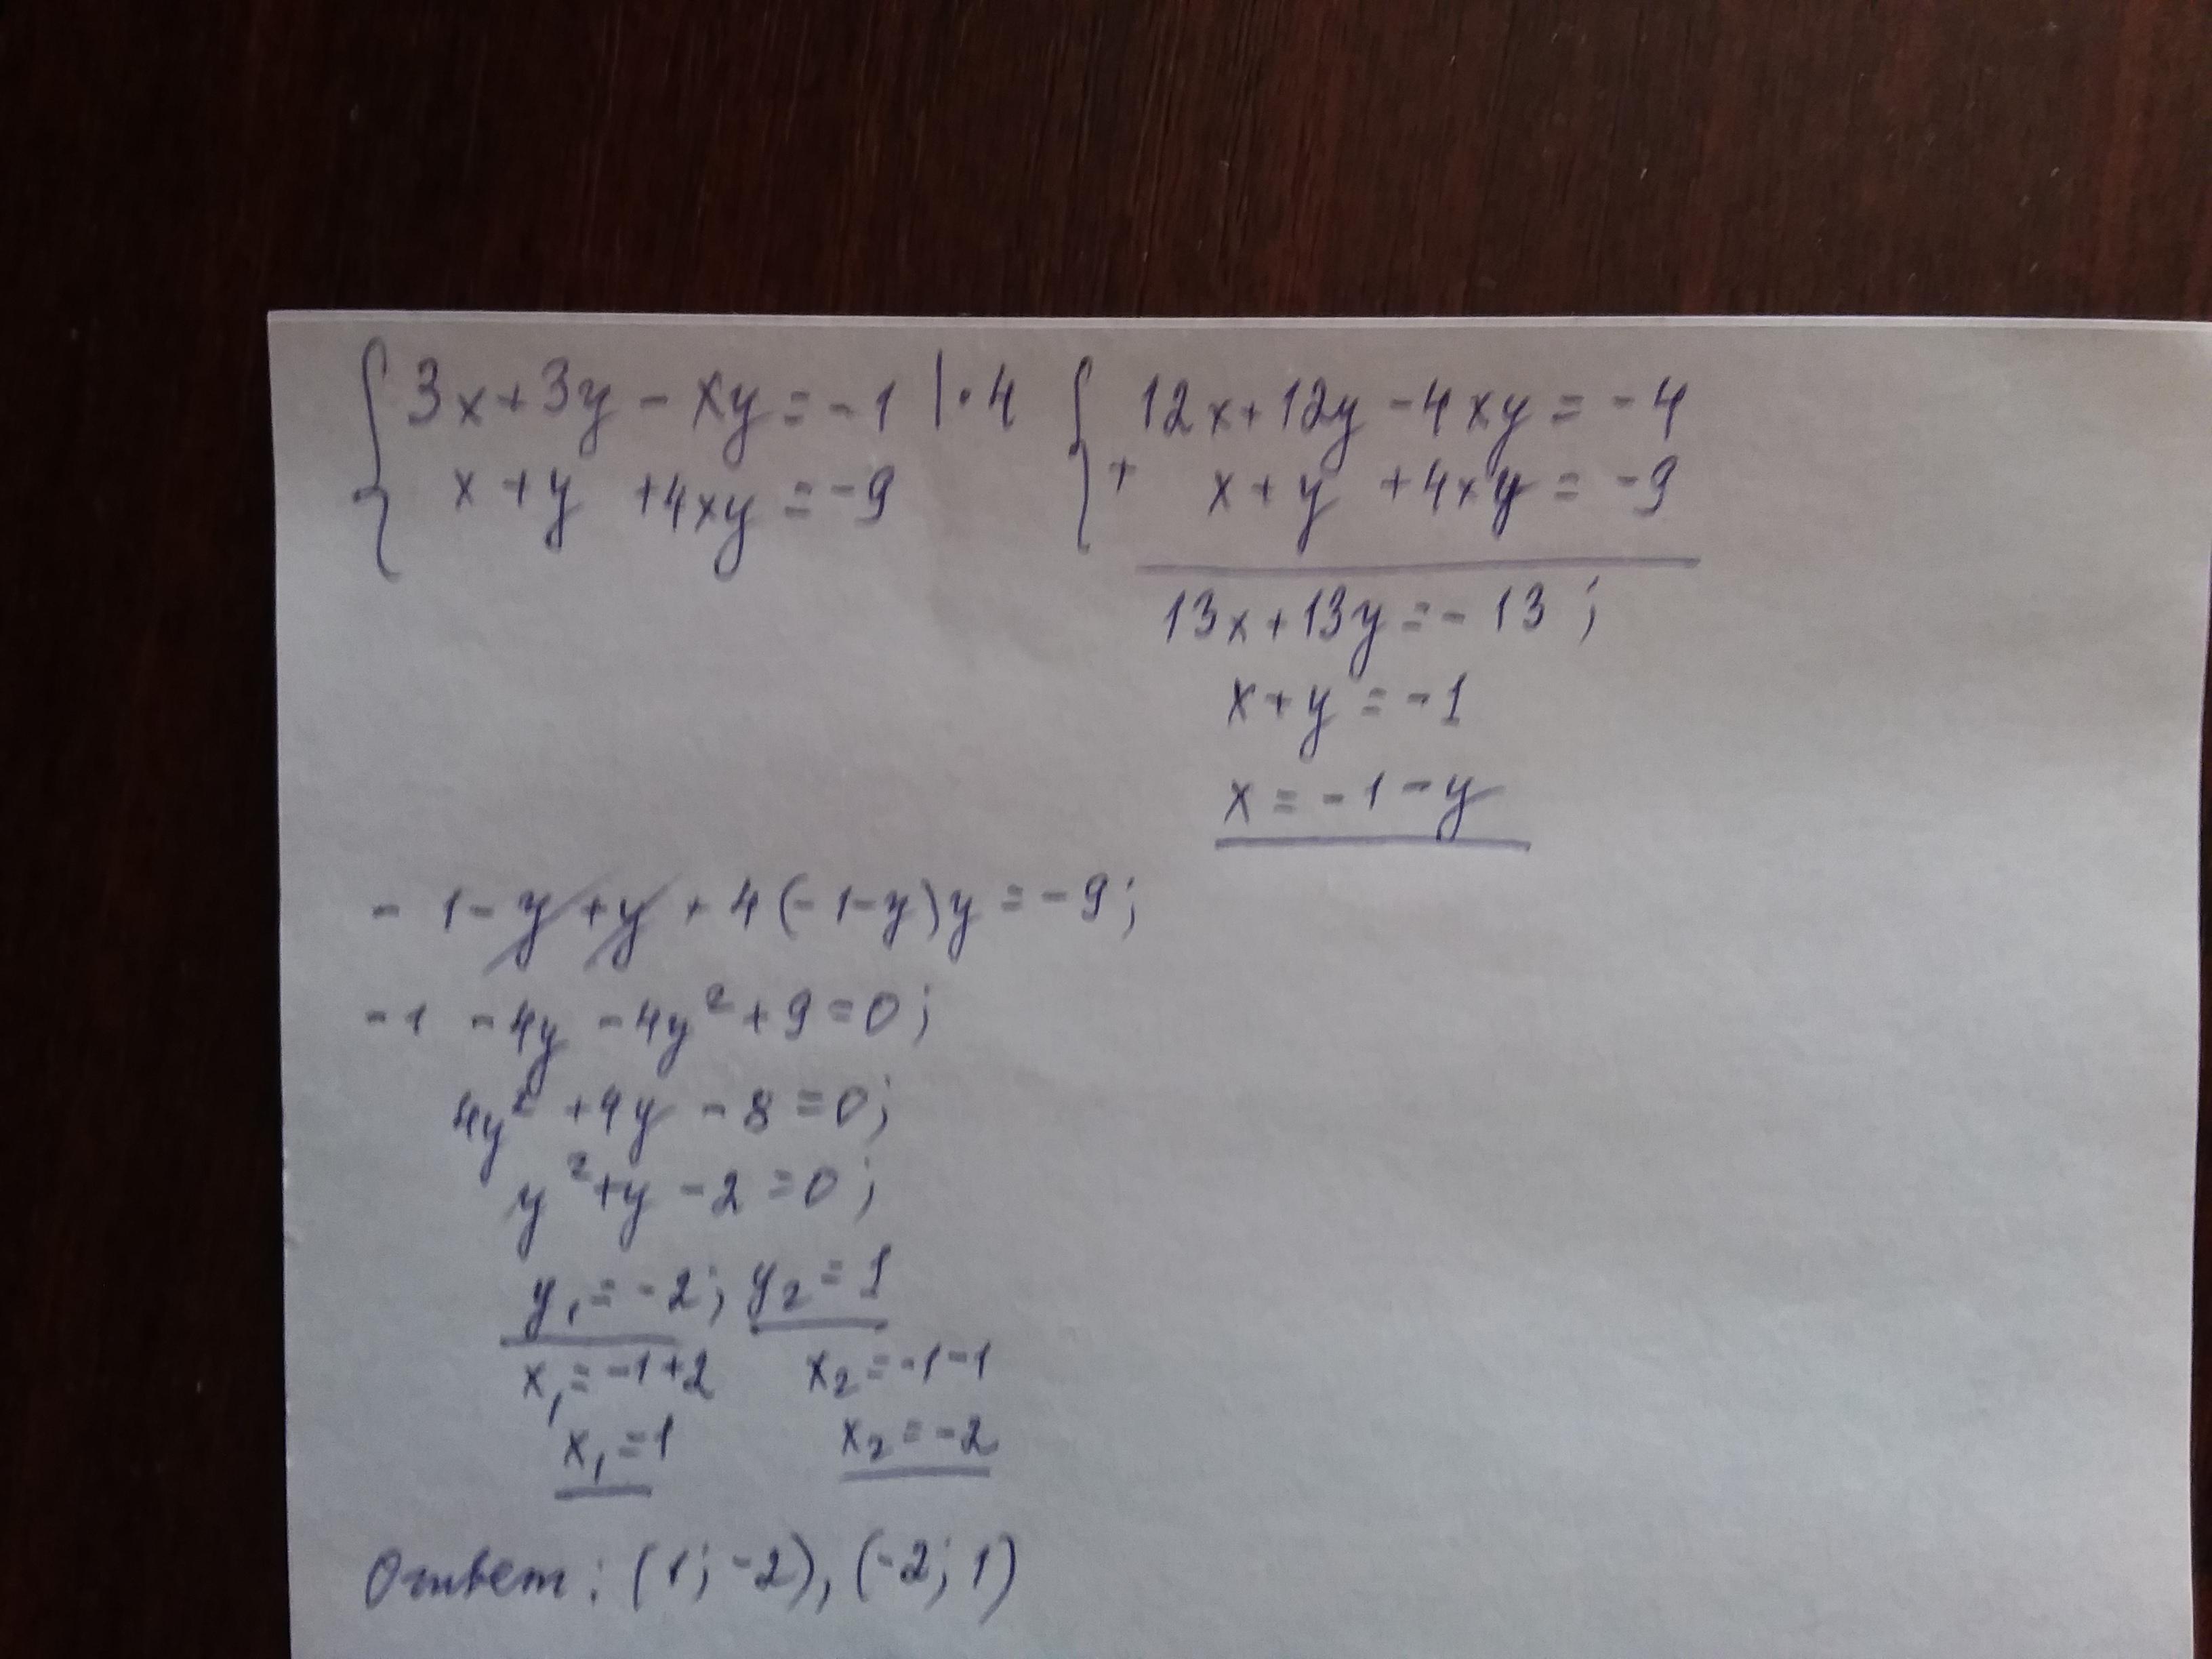 3x+3y-xy=-1 |·4
x+y+4xy=-9
12x+12y-4xy=-4
+ x+y+4xy=-9
13x+13y=-13;
x+y=-1
x=-1-y
-1-y+y+4(-1-y)y=-9;
-1-4y-4y²+9=0;
4y²+4y-8=0;
y²+y-2=0;
y₁=-2; y₂=1
x₁=-1+2 x₂=-1-1
x₁=1 x₂=-2
Ответ: (1;-2), (-2;1)